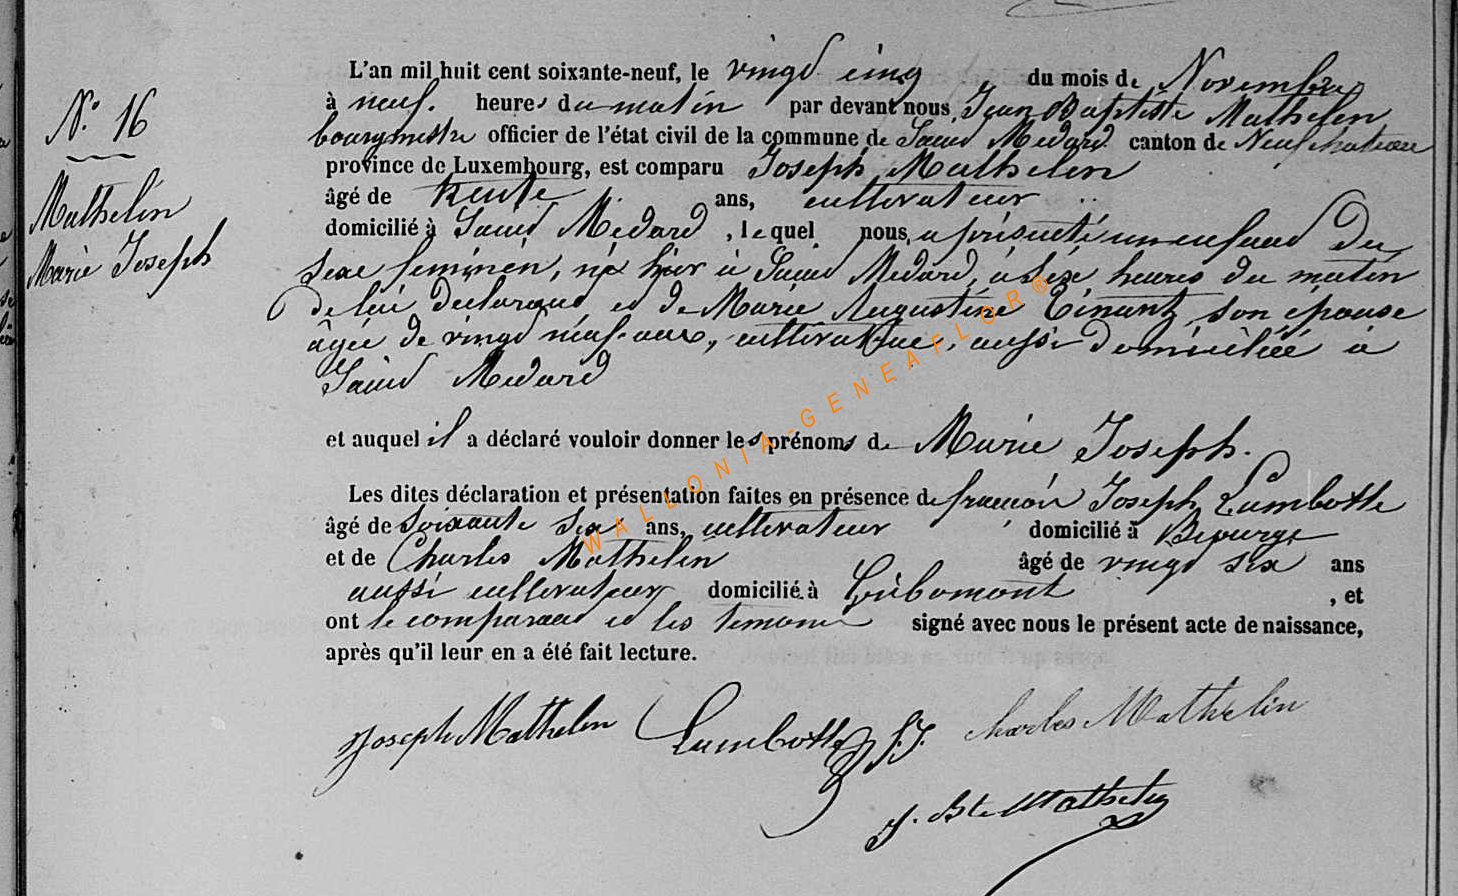 L'an mil huit cent soixante-neuf, le vingt cinq du mois de Novembre
N.° 16
à neuf. heures du matin par devant nous, Jean Baptiste Mathelin
bourgmestre officier de l'état civil de la commune de Saint Médard canton de Neufchateau
province de Luxembourg, est comparu Joseph Mathelin
Mathelin
Marie Joseph
âgé de trente ans, cultivateur
domicilié à Saint Médard, lequel nous a présenté un enfant du
sexe féminin, né hier à Saint Médard, à six heures du matin
de lui déclarant et de Marie Augustine Tinant, son épouse
âgée de vingt neuf ans, cultivatrice, aussi domiciliée à
Saint Médard
et auquel il a déclaré vouloir donner les prénoms de Marie Joseph.
Les dites déclaration et présentation faites en présence de françois Joseph Lambotte
âgé de soixante six ans, cultivateur domicilié à
et de Charles Mathelin âgé de vingt six ans
aussi cultivateur domicilié à Gribomont, et
ont le comparant et les témoins signé avec nous le présent acte de naissance,
après qu'il leur en a été fait lecture.
Joseph Mathelin Lambotte f. J. Charles Mathelin
J. Bte Mathelin
WALLONIA-GENEAFLOR®